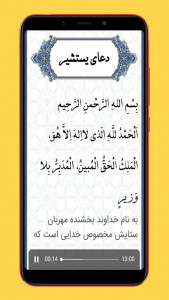 دعای یستشیر
بِسْمِ اللهِ الرَّحْمنِ الرَّحیمِ
اَلْحَمْدُ لِلَّهِ الَّذی لا اِلهَ اِلاَّ هُوَ،
الْمَلِكُ الْحَقُّ الْمُبینُ، الْمُدَبِّرُ بِلا
وَزیرٍ
به نام خداوند بخشنده مهربان
ستایش مخصوص خدایی است که
00:14
13:00